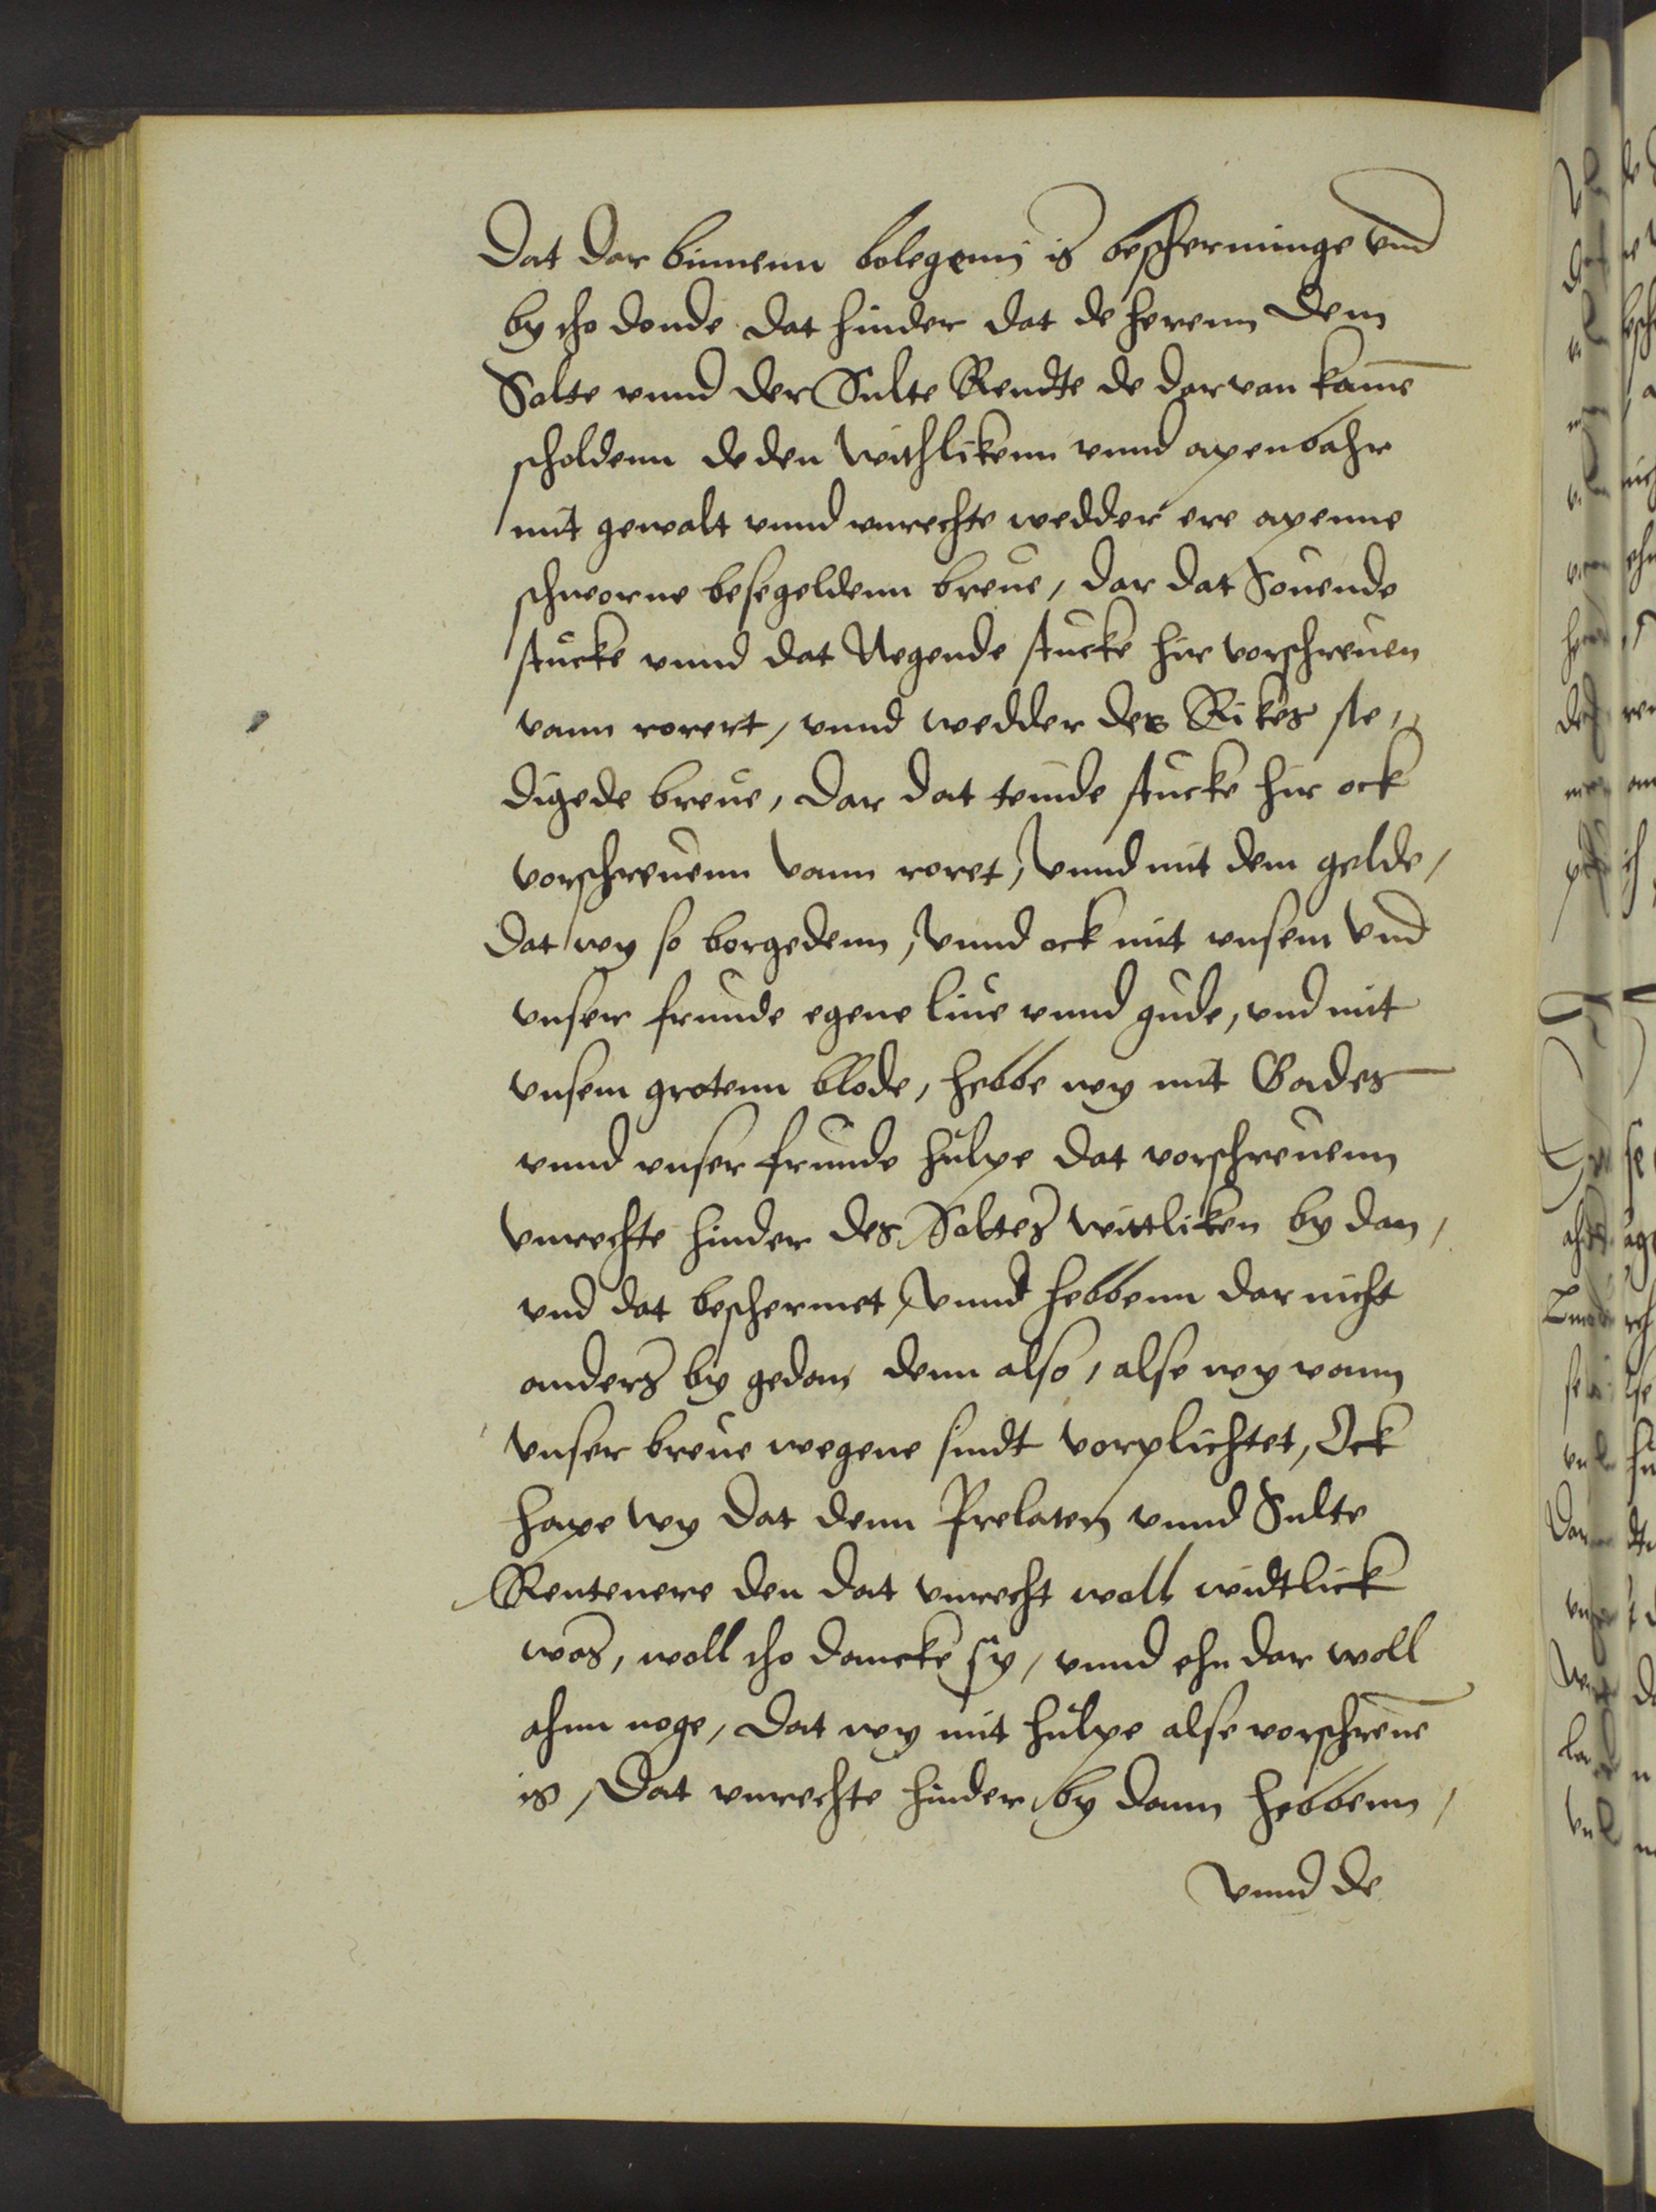 Dat dar binnenn belegenn is bescherminge vnd
by tho donde dat hinder dat de herenn dem
Solte vnnd der Sulte Rendte de dar van kamē
scholdenn deden withlikenn vnnd apenbahr
mit gewalt vnnd vnrechte wedder ere apenne
schworne besegeldenn breue, dar dat Souende
stucke vnnd dat Negende stucke hir vorschreuen
vann rorert, vnnd wedder des Rikes ste,,
digede breue, dar dat teinde stucke hir ock
vorschreuenn vann roret, vnnd mit dem gelde,
Dat wy so borgedenn, vnnd ock mit vnsem vnd
vnser frunde egene liue vnnd gude, vnd mit
vnsem grotenn blode, hebbe wy mit Gades
vnnd vnser frunde hulpe dat vorschreuenn
vnrechte hinder des Soltes wittliken by dan,
vnd dat beschermet, vnnd hebbenn dar nicht
anders by gedan denn also, alse wy vann
vnser breue wegene sindt vorplichtet, Ock
hape wy dat denn Prelaten vnnd Sulte
Rentenere den dat vnrecht woll widtlick
was, woll tho dancke sy, vnnd ehn dar woll
ahnn noge, dat wy mit hulpe alse vorschreuē
is, Dat vnrechte hinder by dann hebbenn,
vnnd de